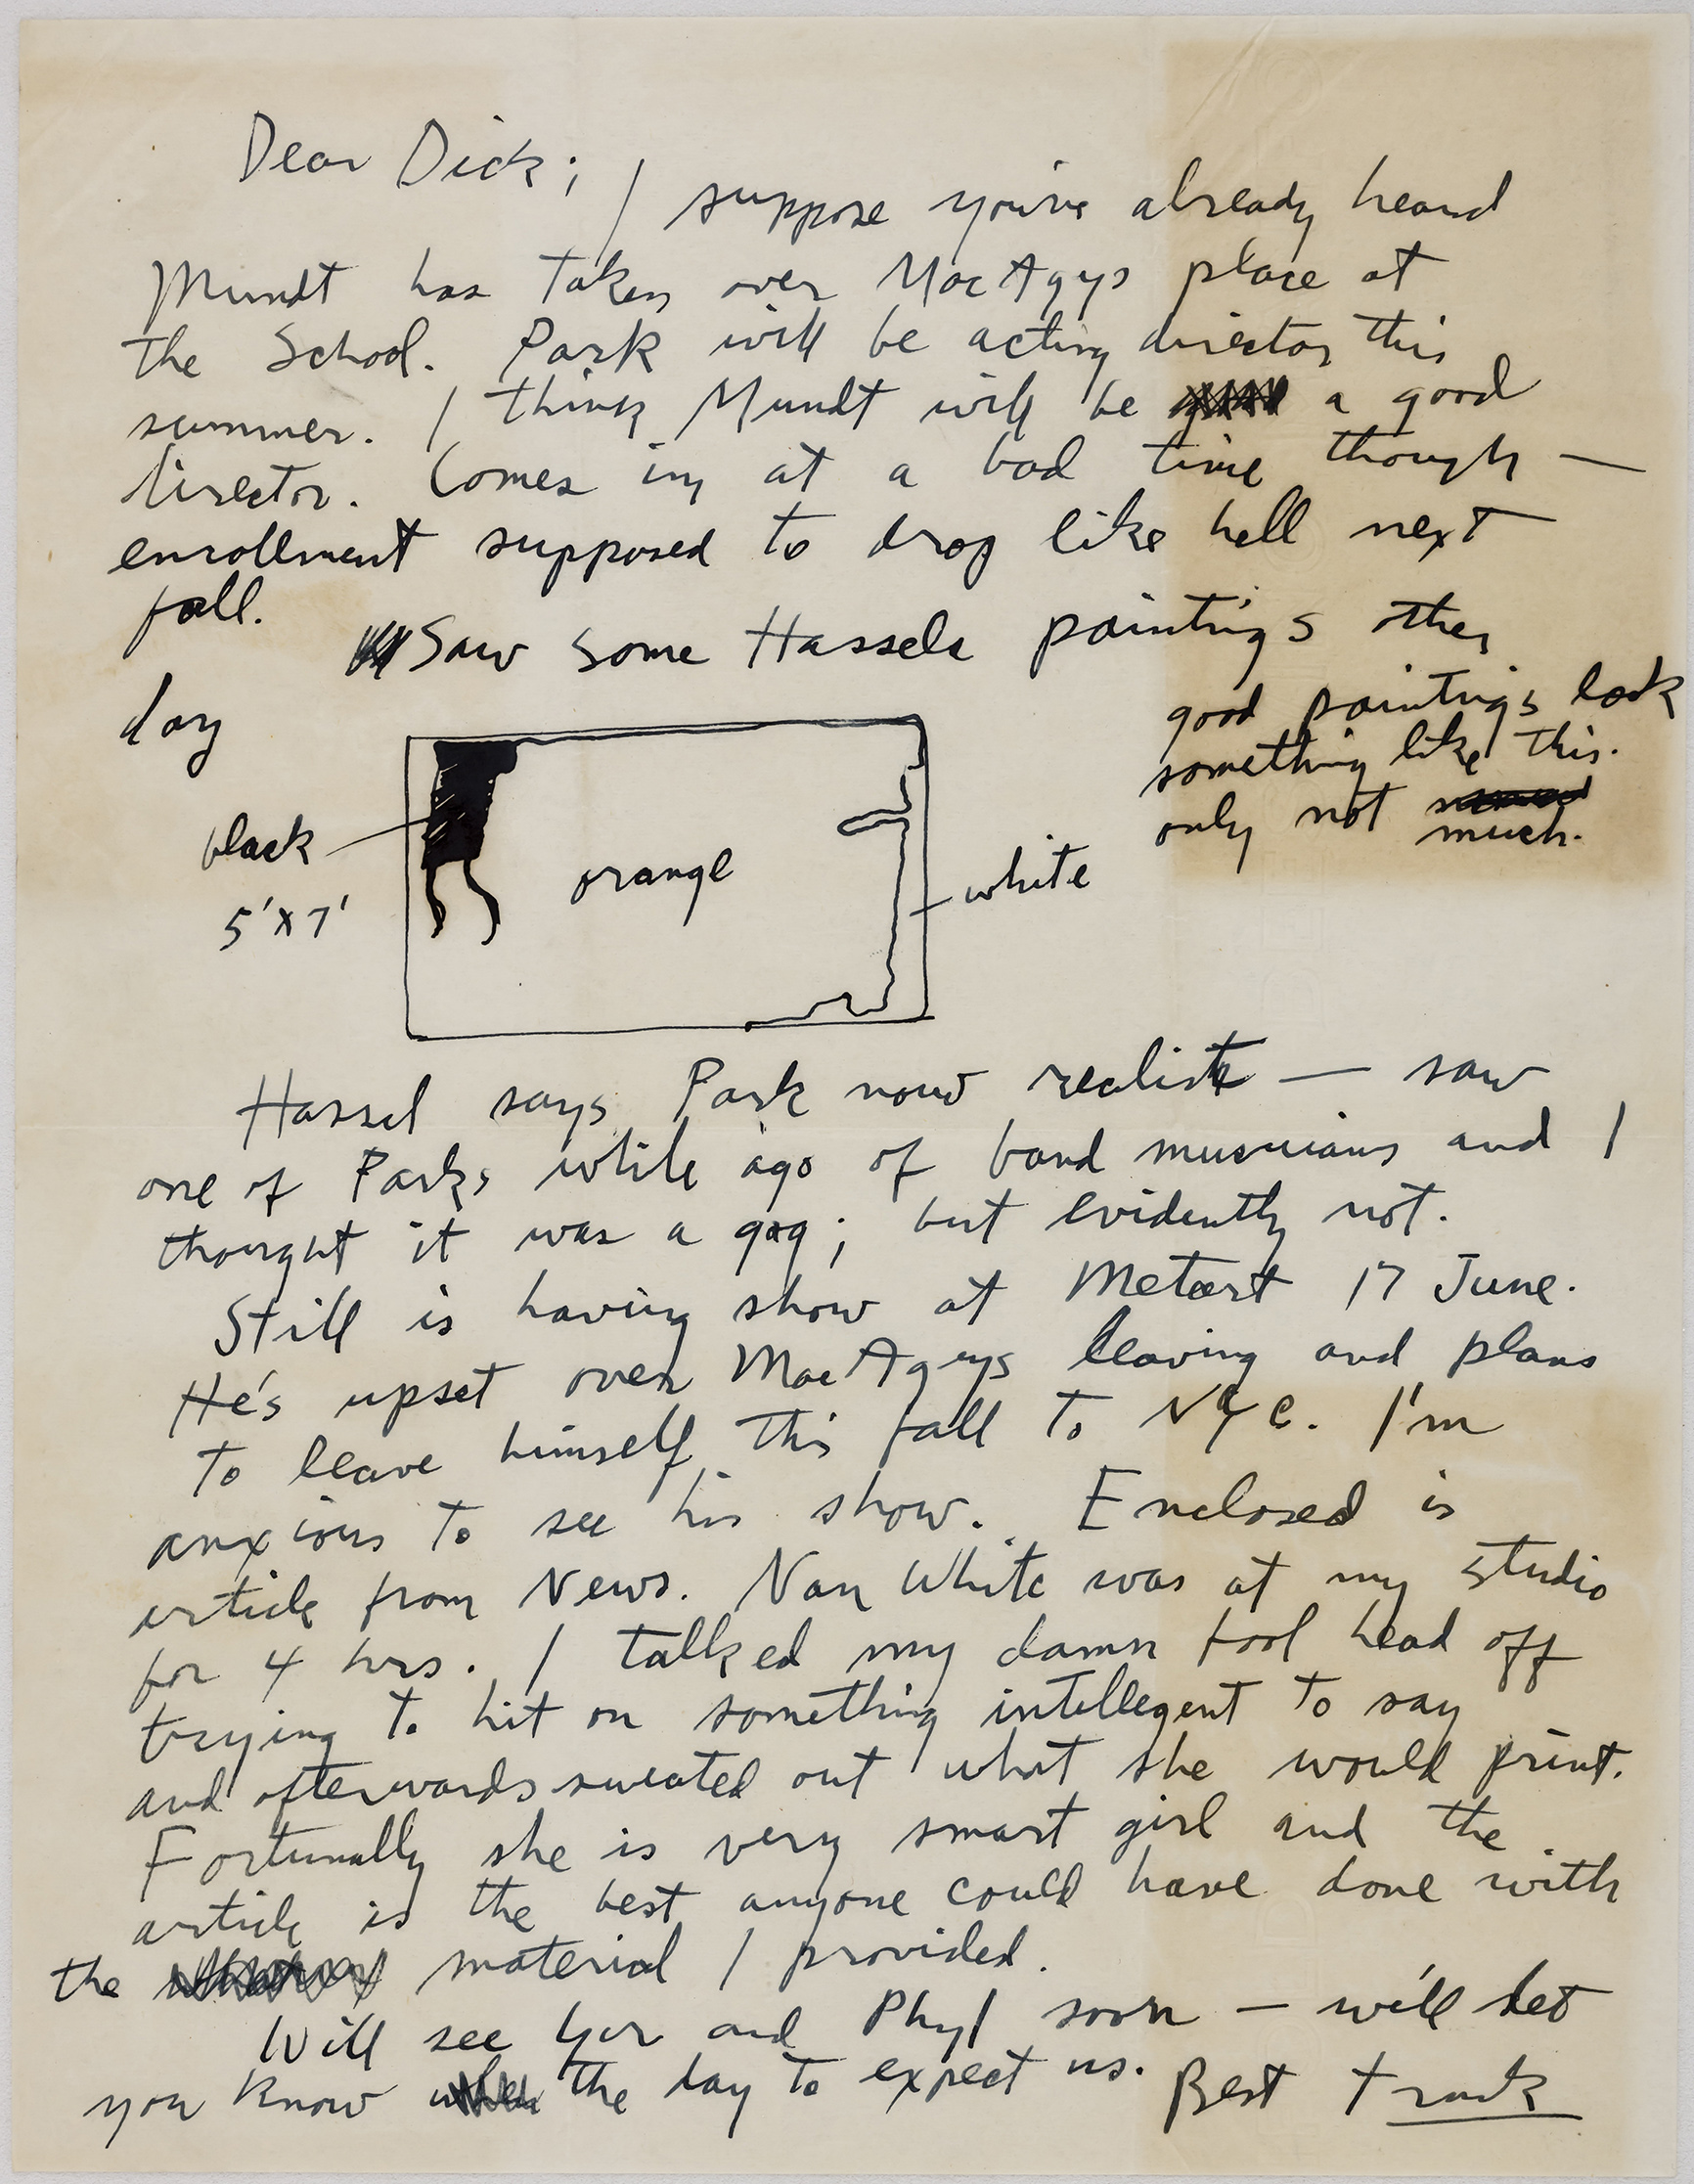 Dear Dick;
I suppose you've already heard
Mundt has taken over MacAgys place at
the School. Park will be acting director this
summer. I think Mundt will be a good
director. Comes in at a bad time though —
enrollment supposed to drop like hell next
fall.
Saw some Hassels paintings other
day
good paintings look
something like this.
only not
much.
black
5'x7'
orange
white
Hassel says Park now realist — saw
one of Parks while ago of band musicians and I
thought it was a gag; but evidently not.
Still is having show at Metart 17 June.
He's upset over MacAgys leaving and plans
to leave himself this fall to NYC. I'm
anxious to see his show. Enclosed is
article from News. Nan White was at my studio
for 4 hrs. I talked my damn fool head off
trying to hit on something intellegent to say
and afterwards sweated out what she would print.
Fortunally she is very smart girl and the
article is the best anyone could have done with
the material I provided.
Will see you and Phyl soon — will let
you know the day to expect us. Best